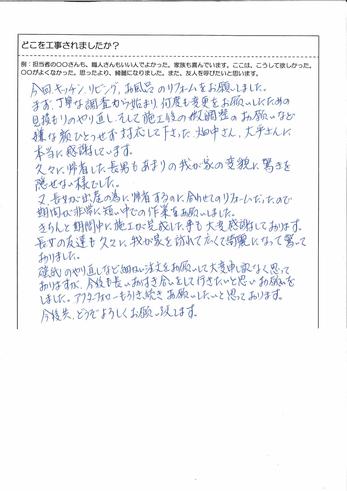 どこを工事されましたか？
例：担当者の〇〇さんも、職人さんもいい人でよかった。家族も喜んでいます。ここは、こうして欲しかった。
〇〇がよくなかった。思ったより、綺麗になりました。また、友人を呼びたいと思います。
今回、キッチン、リビング、お風呂のリフォームをお願いしました。
まず、丁寧な調査から始まり、何度も変更をお願いしたための
見積もりのやり直し、そして施工後の微調整のお願いなど
嫌な顔ひとつせず対応して下さった畑中さん、大手さんに
本当に感謝しています。
久々に帰省した長男もあまりの我が家の変貌に驚きを
隠せない様でした。
又、長女が出産の為に帰省するのに合わせてのリフォームだったので
期間が非常に短い中での作業をお願いしました。
きちんと期間中に施工が完成した事も大変感謝しております。
長女の友達も久々に我が家を訪れて広くて綺麗になって驚いて
おりました。
壁紙のやり直しなど細かい注文をお願いして大変申し訳なく思って
おりますが、今後も長いお付き合いをして行きたいと思いお願いを
しました。アフターフォローも引き続きお願いしたいと思っております。
今後共、どうぞよろしくお願い致します。